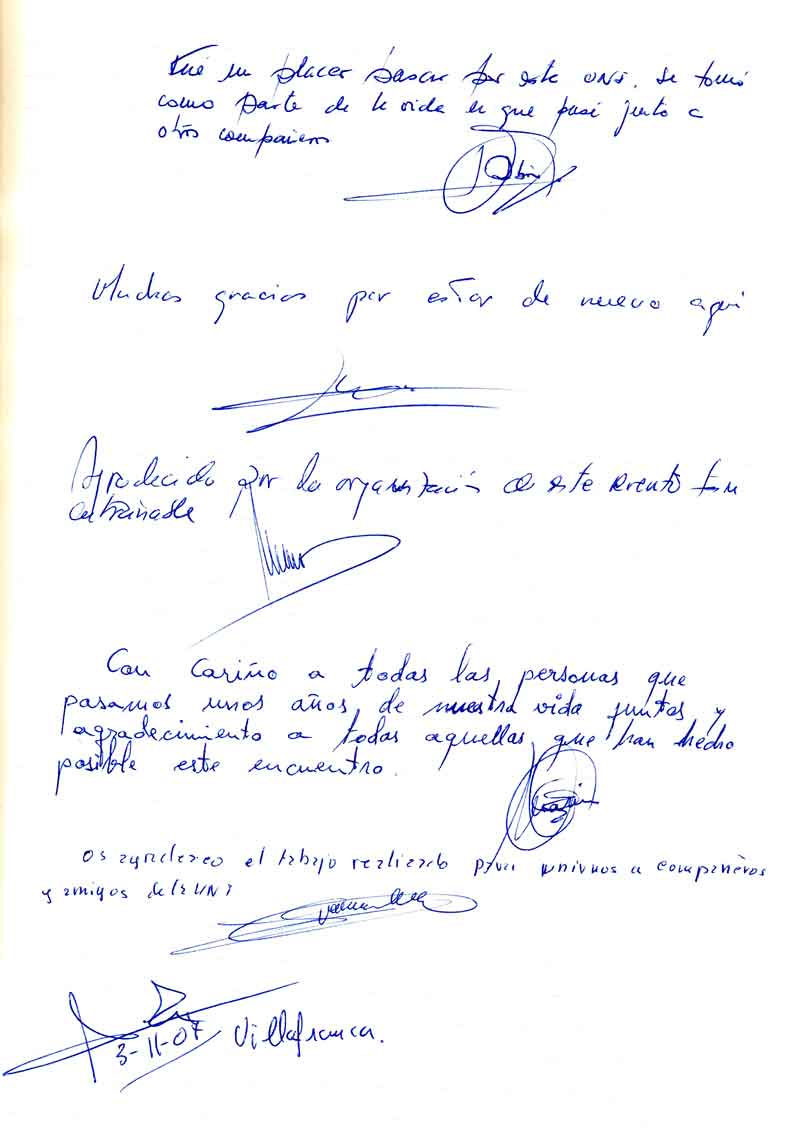 Fué un placer pasar por este UNI. Se tomó
como parte de la vida en que pasé junto a
otros compañeros
Muchas gracias por estar de nuevo aquí
Agradecido por la organización de este evento tan
entrañable
Con cariño a todas las personas que
pasamos unos años, de nuestra vida juntas y
agradecimiento a todas aquellas, que han hecho
posible este encuentro.
Os agradezco el trabajo realizado para unirnos a compañeros
y amigos de la UNI
3-11-07 Villafranca.